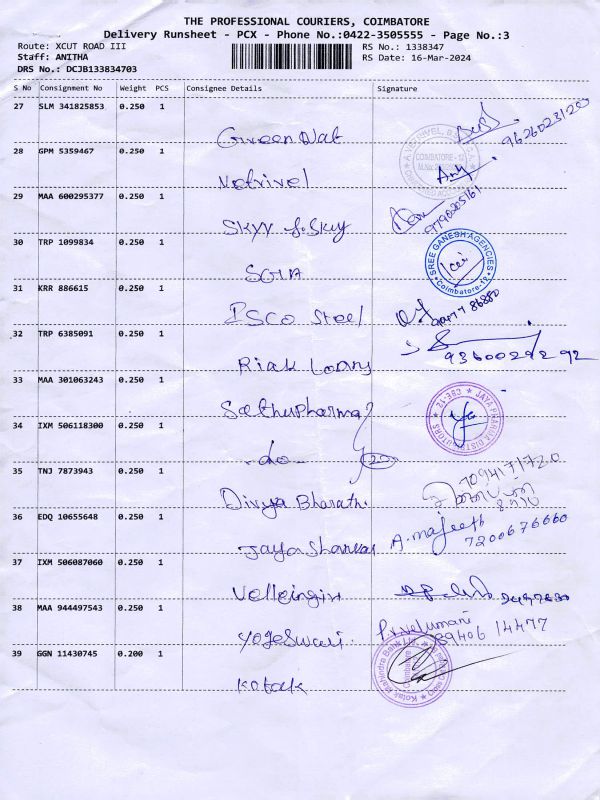 THE PROFESSIONAL COURIERS, COIMBATORE
Delivery Runsheet - PCX - Phone No.:0422-3505555 - Page No.:3
Route: XCUT ROAD III RS No.: 1338347
Staff: ANITHA RS Date: 16-Mar-2024
DRS No.: DCJB133834703
S No Consignment No Weight PCS Consignee Details Signature
27 SLM 341825853 0.250 1
Green Nat 9626023120
28 GPM 5359467 0.250 1
COIMBATORE-12
Vetrivel
29 MAA 600295377 0.250 1
Skyy
30 TRP 1099834 0.250 1
SREE GANESH AGENCIES
Coimbatore-12
SGIA
31 KRR 886615 0.250 1
ISCO Steel
32 TRP 6385091 0.250 1
Riak Loans
33 MAA 301063243 0.250 1
JAYA PHARMA DISTRIBUTORS
CBE-12
Sathupharma
34 IXM 506118300 0.250 1
-do-
35 TNJ 7873943 0.250 1
7094171720
Divya Bharathi
36 EDQ 10655648 0.250 1
A. majeeth
Jaya Shankar 7200676660
37 IXM 506087060 0.250 1
Velleingiri
38 MAA 944497543 0.250 1
P. velumani
Yogeswari 89406 14477
39 GGN 11430745 0.200 1
Kotak Mahindra Bank Ltd
Coimbatore
Kotak